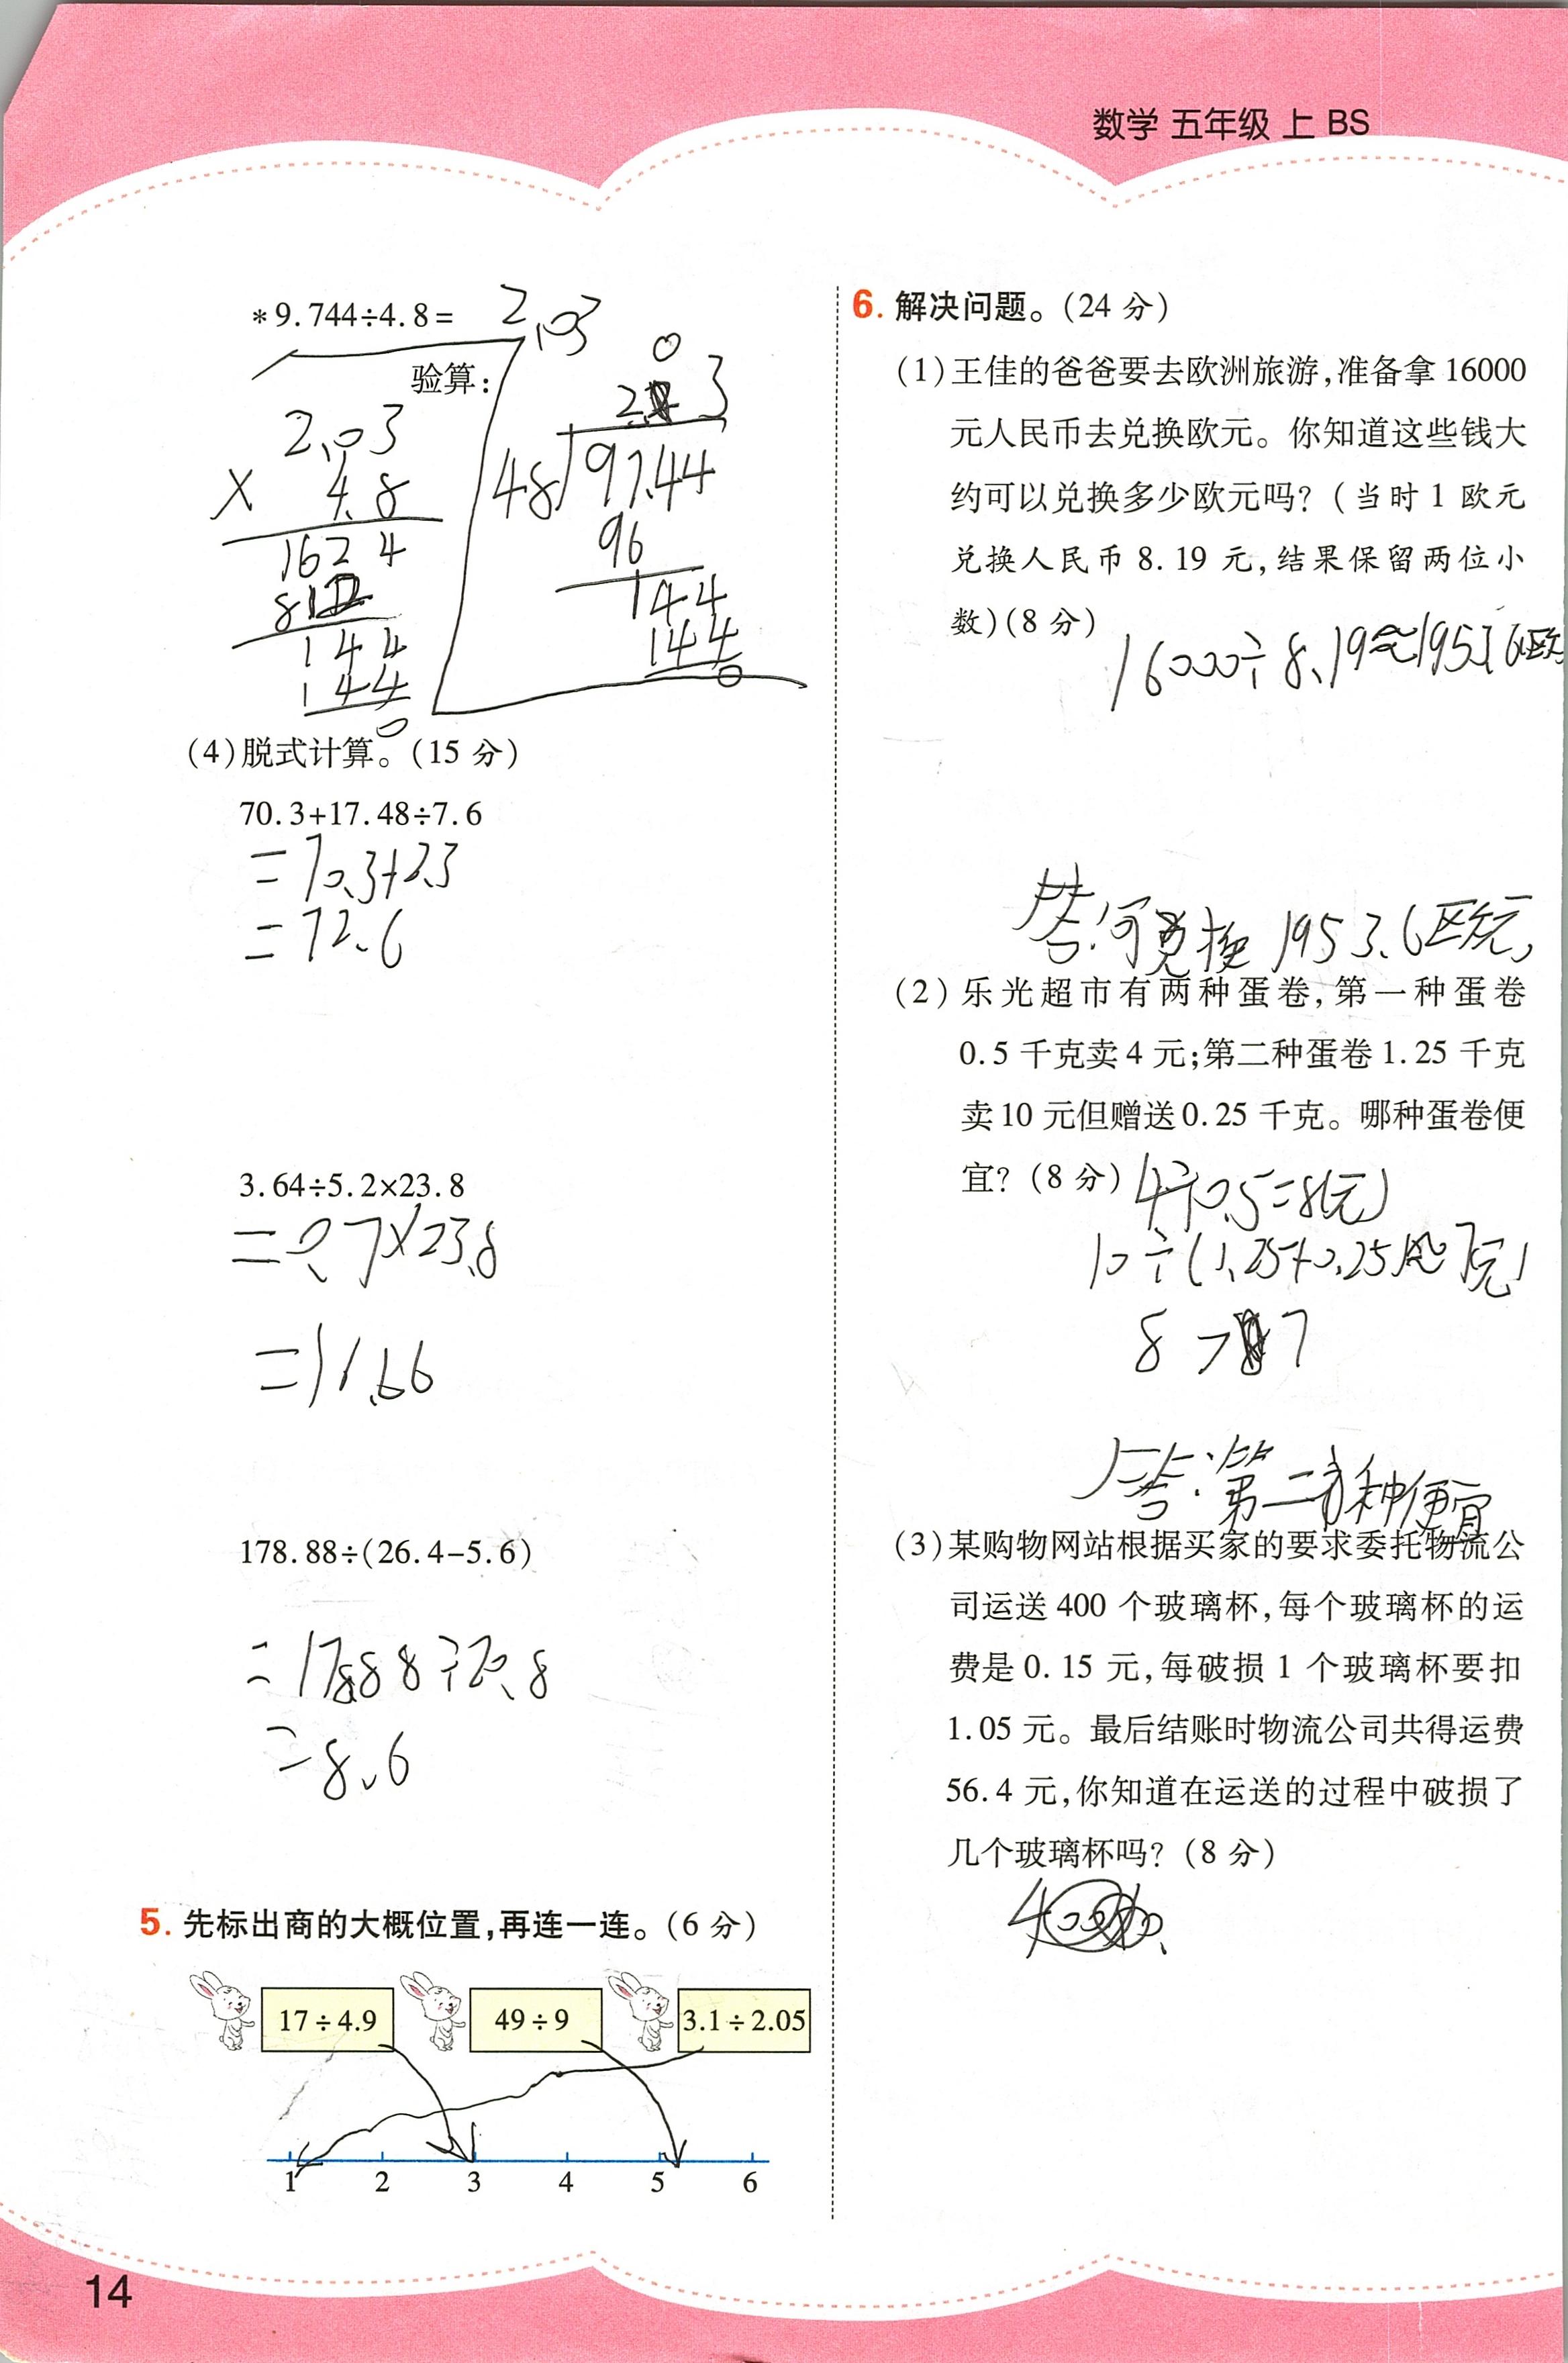 数学 五年级 上 BS
*9.744÷4.8= 2.03
验算:
2.03
× 4.8
1624
812
144
144
0
0
2. 3
48 97.44
96
144
144
0
(4)脱式计算。(15 分)
70.3+17.48÷7.6
=70.3+2.3
=72.6
3.64÷5.2×23.8
=0.7×23.8
=16.66
178.88÷(26.4-5.6)
=178.88÷20.8
=8.6
5. 先标出商的大概位置,再连一连。(6 分)
17÷4.9 49÷9 3.1÷2.05
1 2 3 4 5 6
14
6. 解决问题。(24 分)
(1)王佳的爸爸要去欧洲旅游,准备拿 16000
元人民币去兑换欧元。你知道这些钱大
约可以兑换多少欧元吗?(当时 1 欧元
兑换人民币 8.19 元,结果保留两位小
数)(8 分)
16000÷8.19≈1953.6欧元
答:可兑换1953.6欧元,
(2)乐光超市有两种蛋卷,第一种蛋卷
0.5 千克卖 4 元;第二种蛋卷 1.25 千克
卖 10 元但赠送 0.25 千克。哪种蛋卷便
宜?(8 分)
4÷0.5=8(元)
10÷(1.25+0.25)≈7元)
8>7
答:第二种便宜
(3)某购物网站根据买家的要求委托物流公
司运送 400 个玻璃杯,每个玻璃杯的运
费是 0.15 元,每破损 1 个玻璃杯要扣
1.05 元。最后结账时物流公司共得运费
56.4 元,你知道在运送的过程中破损了
几个玻璃杯吗?(8 分)